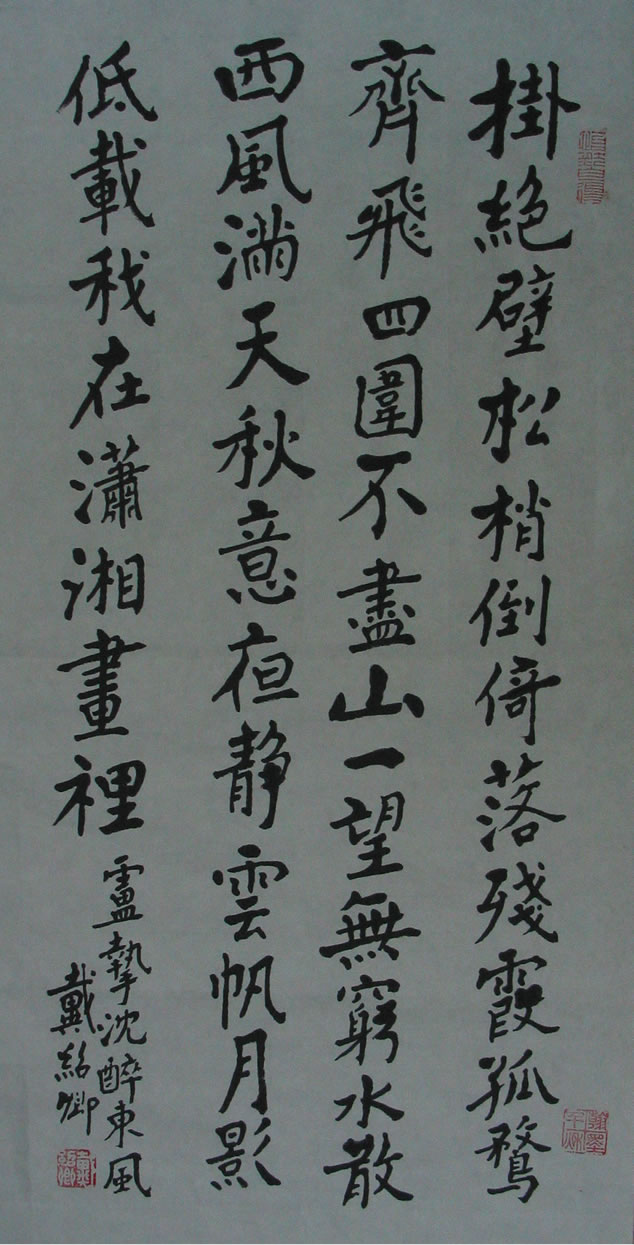 掛絕壁松梢倒倚落殘霞孤鶩
齊飛四圍不盡山一望無窮水散
西風滿天秋意夜靜雲帆月影
低載我在瀟湘畫裡
盧摯沈醉東風
戴紹卿